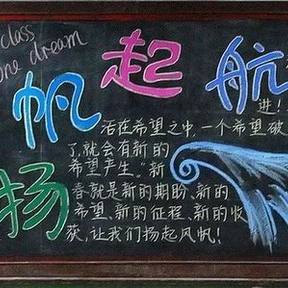 class
one dream
扬帆起航
进!
活在希望之中,一个希望破
了,就会有新的
希望产生。"新
春就是新的期盼、新的
希望、新的征程、新的收
获,让我们扬起风帆!